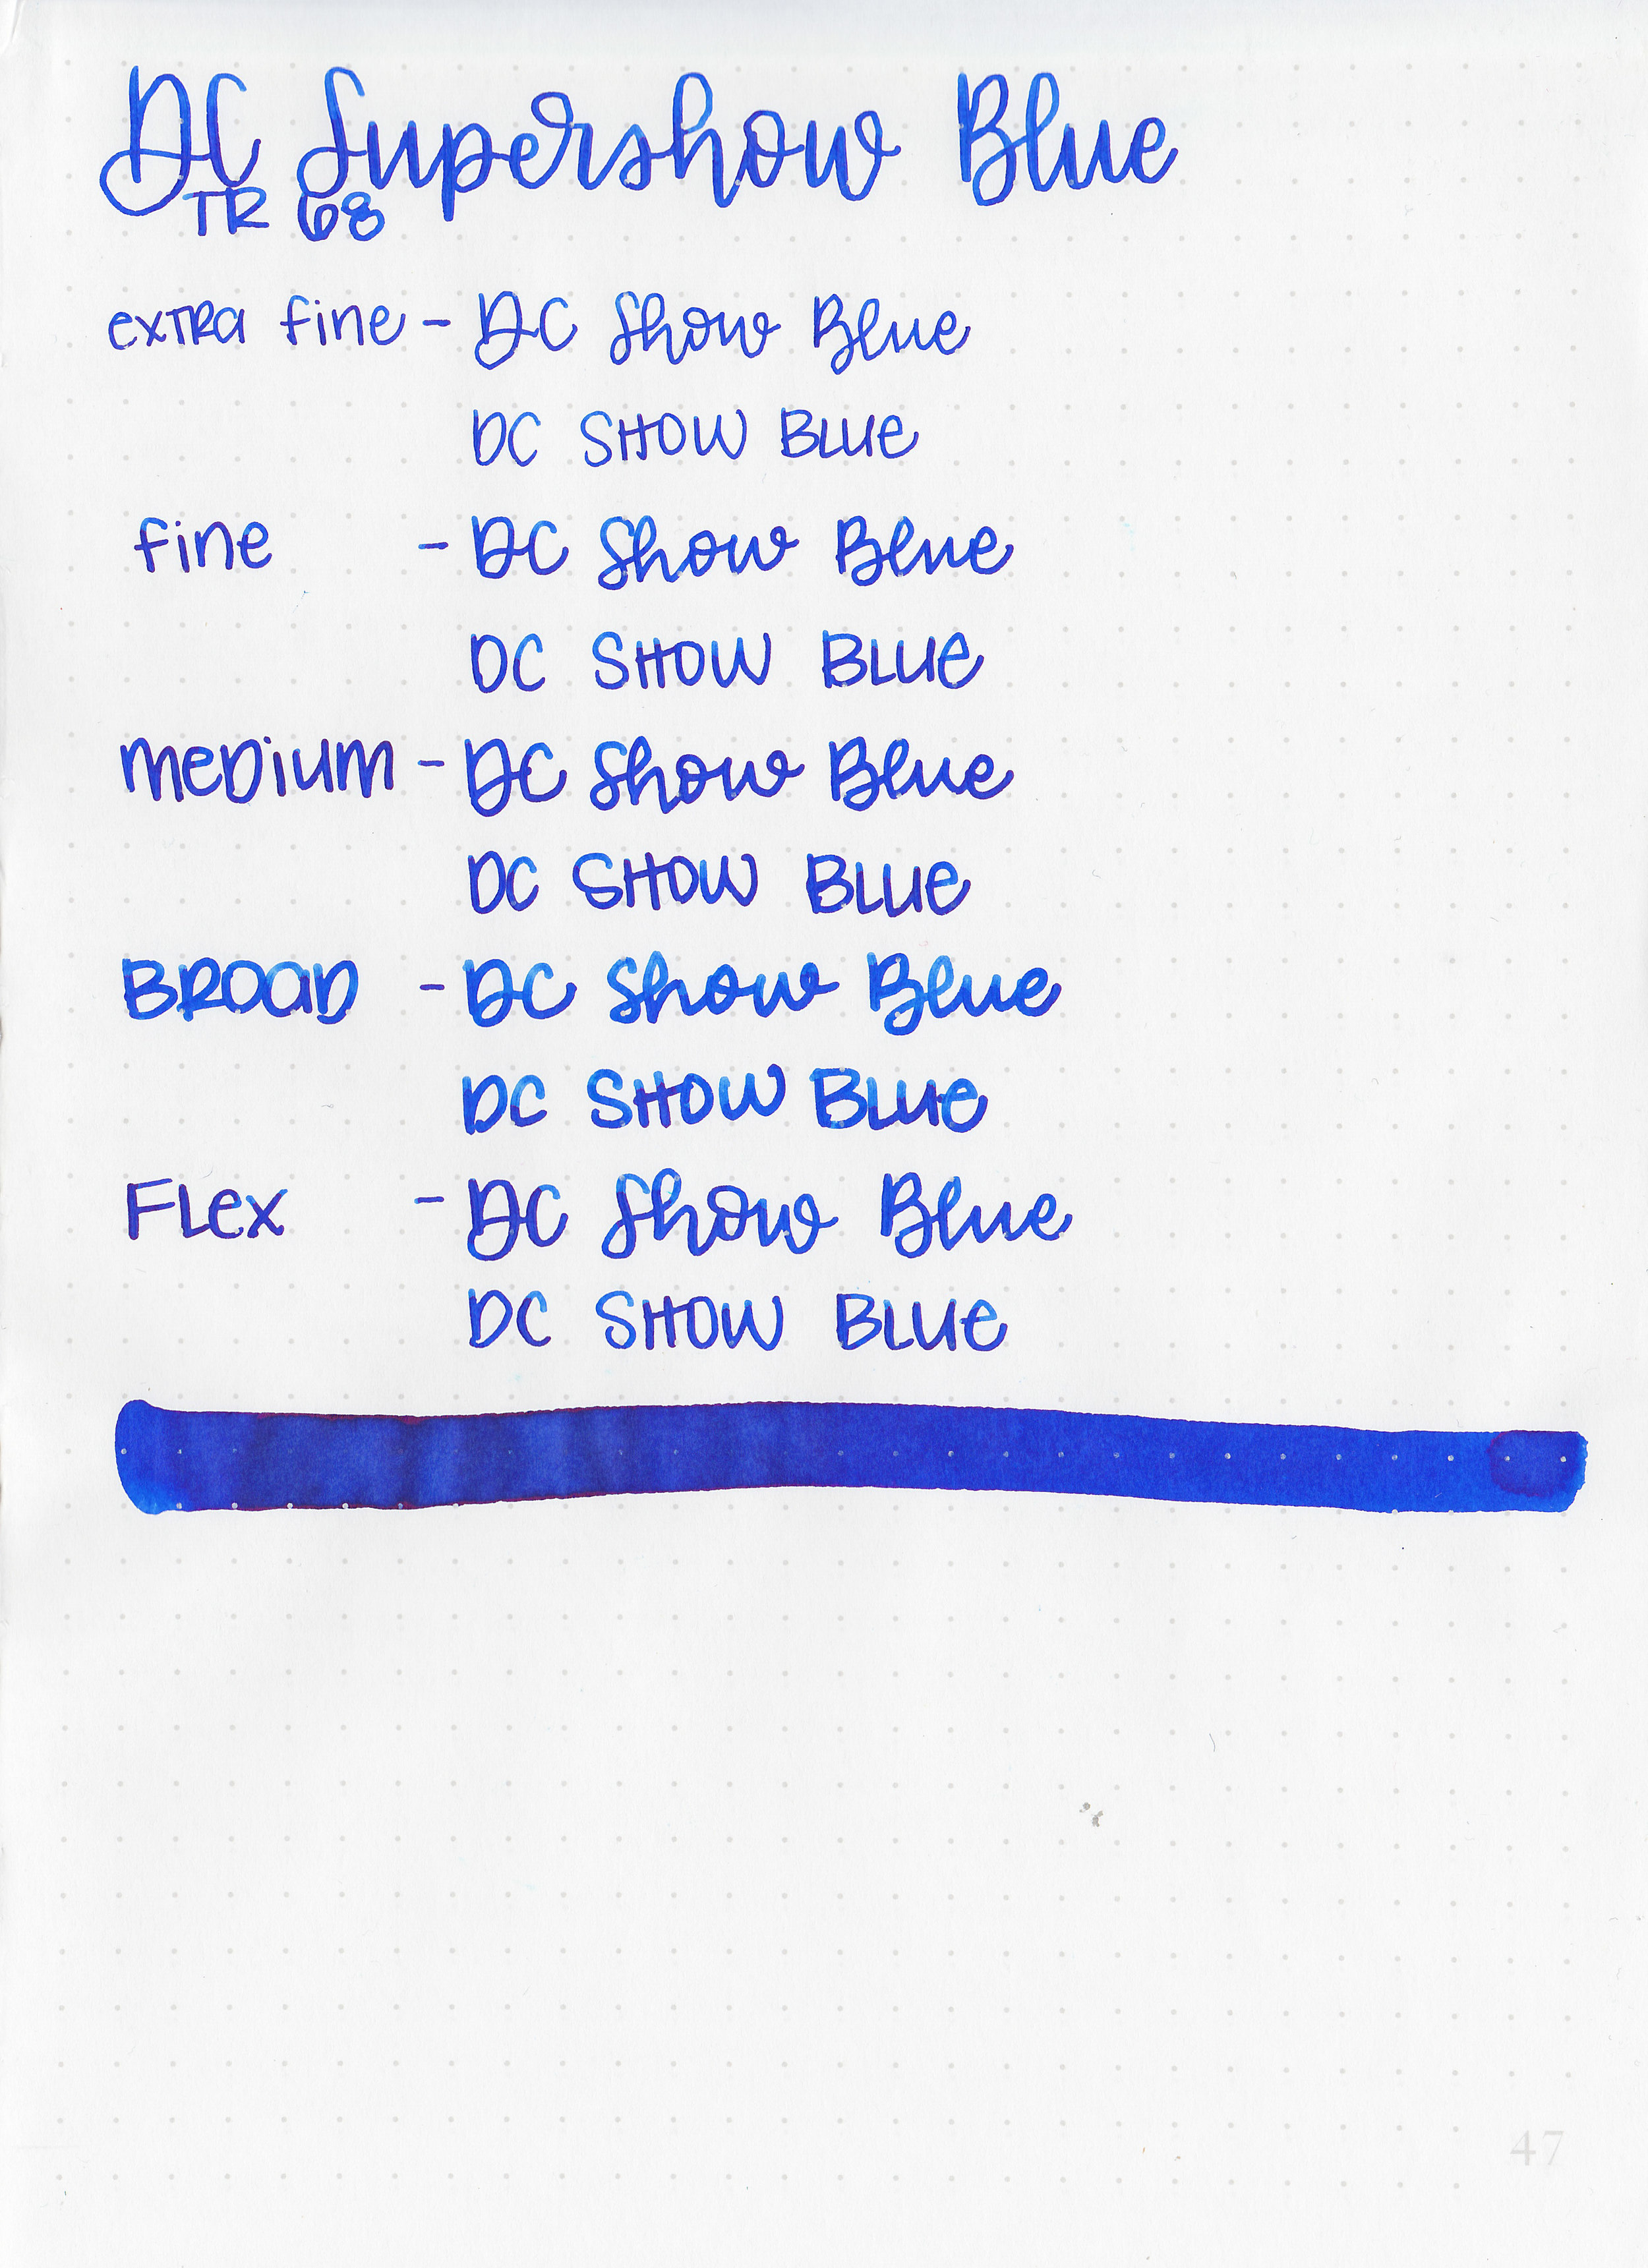 DC Supershow Blue
TR 68
extra fine - DC Show Blue
DC SHOW BLUe
fine - DC Show Blue
DC SHOW BLUe
meDium - DC Show Blue
DC SHOW BLUe
BROaD - DC Show Blue
DC SHOW BLUe
FLex - DC Show Blue
DC SHOW BLUe
47